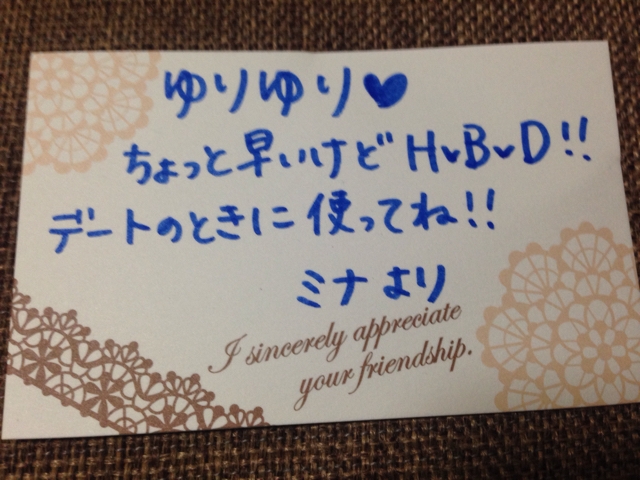 ゆりゆり♥
ちょっと早いけど H♥B♥D!!
デートのときに使ってね!!
ミナより
I sincerely appreciate
your friendship.